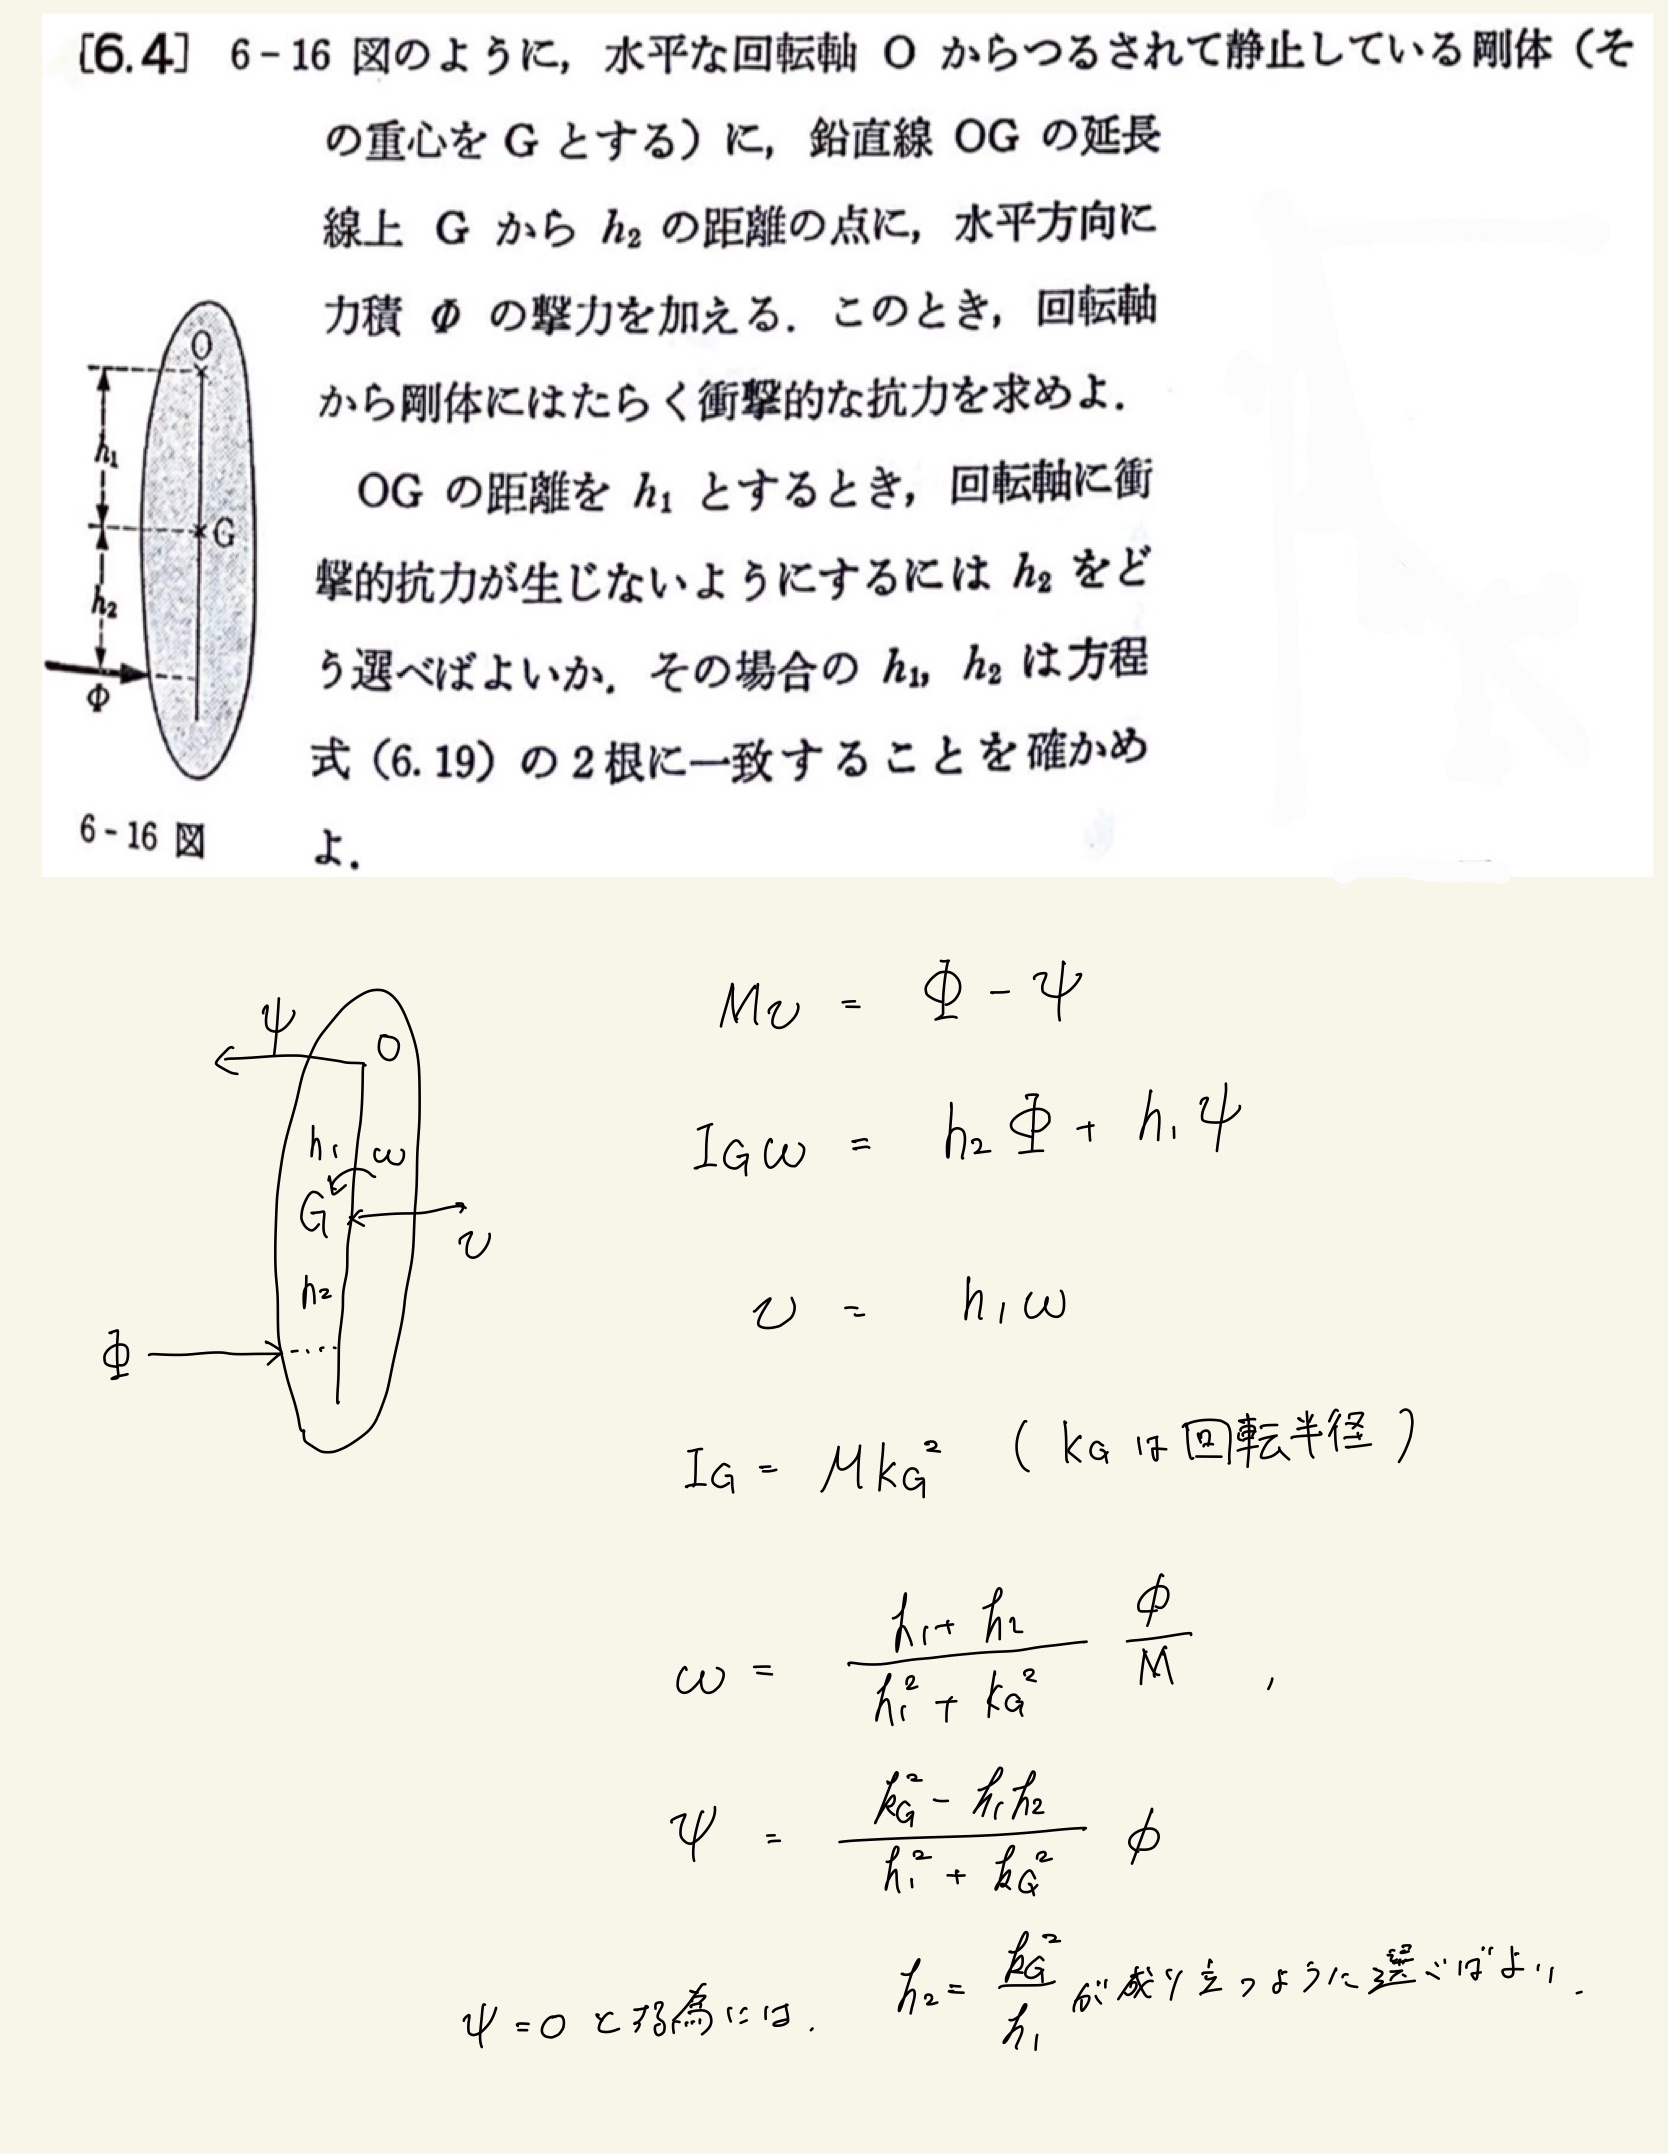 [6.4] 6-16 図のように，水平な回転軸 O からつるされて静止している剛体（そ
の重心を G とする）に，鉛直線 OG の延長
線上 G から h₂ の距離の点に，水平方向に
力積 Φ の撃力を加える．このとき，回転軸
から剛体にはたらく衝撃的な抗力を求めよ．
OG の距離を h₁ とするとき，回転軸に衝
撃的抗力が生じないようにするには h₂ をど
う選べばよいか．その場合の h₁, h₂ は方程
式（6.19）の2根に一致することを確かめ
よ．
O
h₁
G
h₂
Φ
6-16 図
ψ
O
h₁
ω
G
v
h₂
Φ
Mv = Φ - ψ
I_G ω = h₂ Φ + h₁ ψ
v = h₁ ω
I_G = M k_G² ( k_G は回転半径 )
ω = (h₁ + h₂)/(h₁² + k_G²) ϕ/M ,
ψ = (k_G² - h₁h₂)/(h₁² + k_G²) ϕ
ψ = 0 とする為には. h₂ = k_G²/h₁ が成り立つように選べばよい.